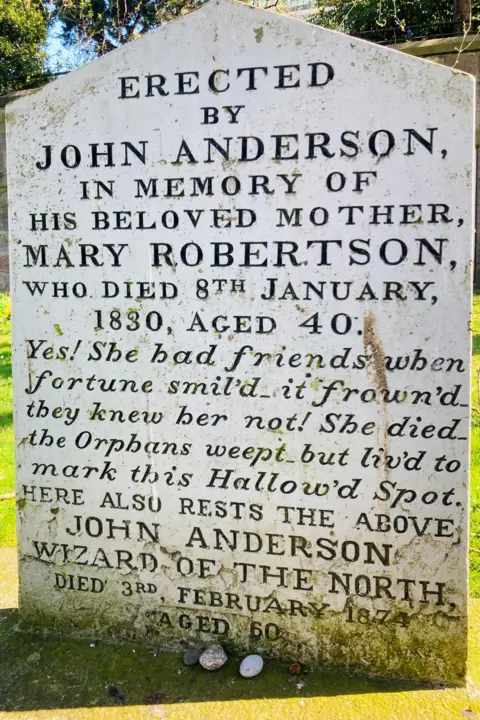 ERECTED
BY
JOHN ANDERSON,
IN MEMORY OF
HIS BELOVED MOTHER,
MARY ROBERTSON,
WHO DIED 8TH JANUARY,
1830, AGED 40.
Yes! She had friends when
fortune smil'd_ it frown'd_
they knew her not! She died_
the Orphans weept_ but liv'd to
mark this Hallow'd Spot.
HERE ALSO RESTS THE ABOVE,
JOHN ANDERSON
WIZARD OF THE NORTH,
DIED 3RD, FEBRUARY 1874
AGED 60